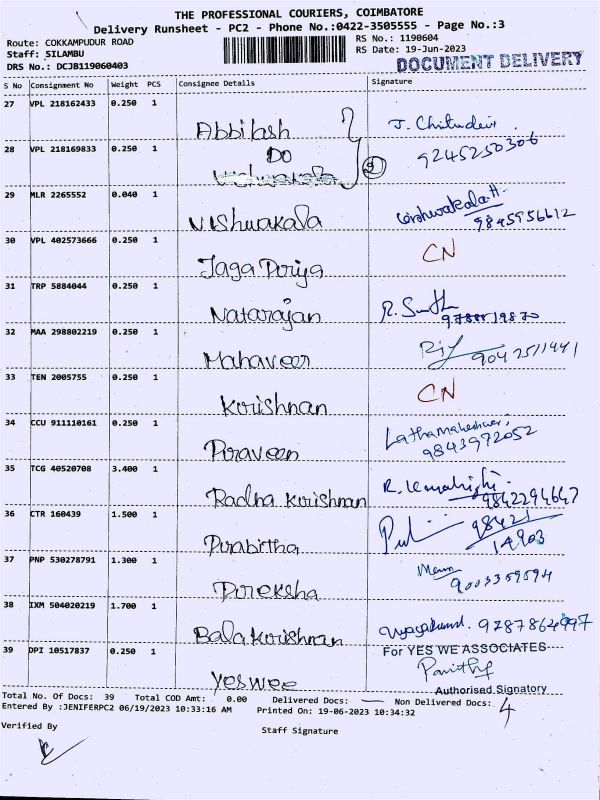 THE PROFESSIONAL COURIERS, COIMBATORE
Delivery Runsheet - PC2 - Phone No.:0422-3505555 - Page No.:3
Route: COKKAMPUDUR ROAD
Staff: SILAMBU
DRS No.: DCJB119060403
RS No.: 1190604
RS Date: 19-Jun-2023
DOCUMENT DELIVERY
S No Consignment No Weight PCS Consignee Details Signature
27 VPL 218162433 0.250 1
Abbilash
28 VPL 218169833 0.250 1
DO 9245250306
2
29 MLR 2265552 0.040 1
Vishwakala 9845956612
30 VPL 402573666 0.250 1
Jaga Piriya CN
31 TRP 5884044 0.250 1
Natarajan
32 MAA 298802219 0.250 1
Mahaveer 9042511941
33 TEN 2005755 0.250 1
Kirishnan CN
34 CCU 911110161 0.250 1
Piraveen 9843972052
35 TCG 40520708 3.400 1
Radha Kirishnan 9842294647
36 CTR 160439 1.500 1
Pirabirtha 98421 14903
37 PNP 530278791 1.300 1
Pireksha
38 IXM 504020219 1.700 1
Bala Kirishnan
39 DPI 10517837 0.250 1
Yes wee
For YES WE ASSOCIATES
Authorised Signatory
Total No. Of Docs: 39 Total COD Amt: 0.00 Delivered Docs: Non Delivered Docs: 4
Entered By :JENIFERPC2 06/19/2023 10:33:16 AM Printed On: 19-06-2023 10:34:32
Verified By
Staff Signature